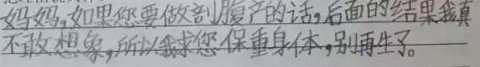 妈妈,如果您要做剖腹产的话,后面的结果我真
不敢想象,所以我求您保重身体,别再生了。